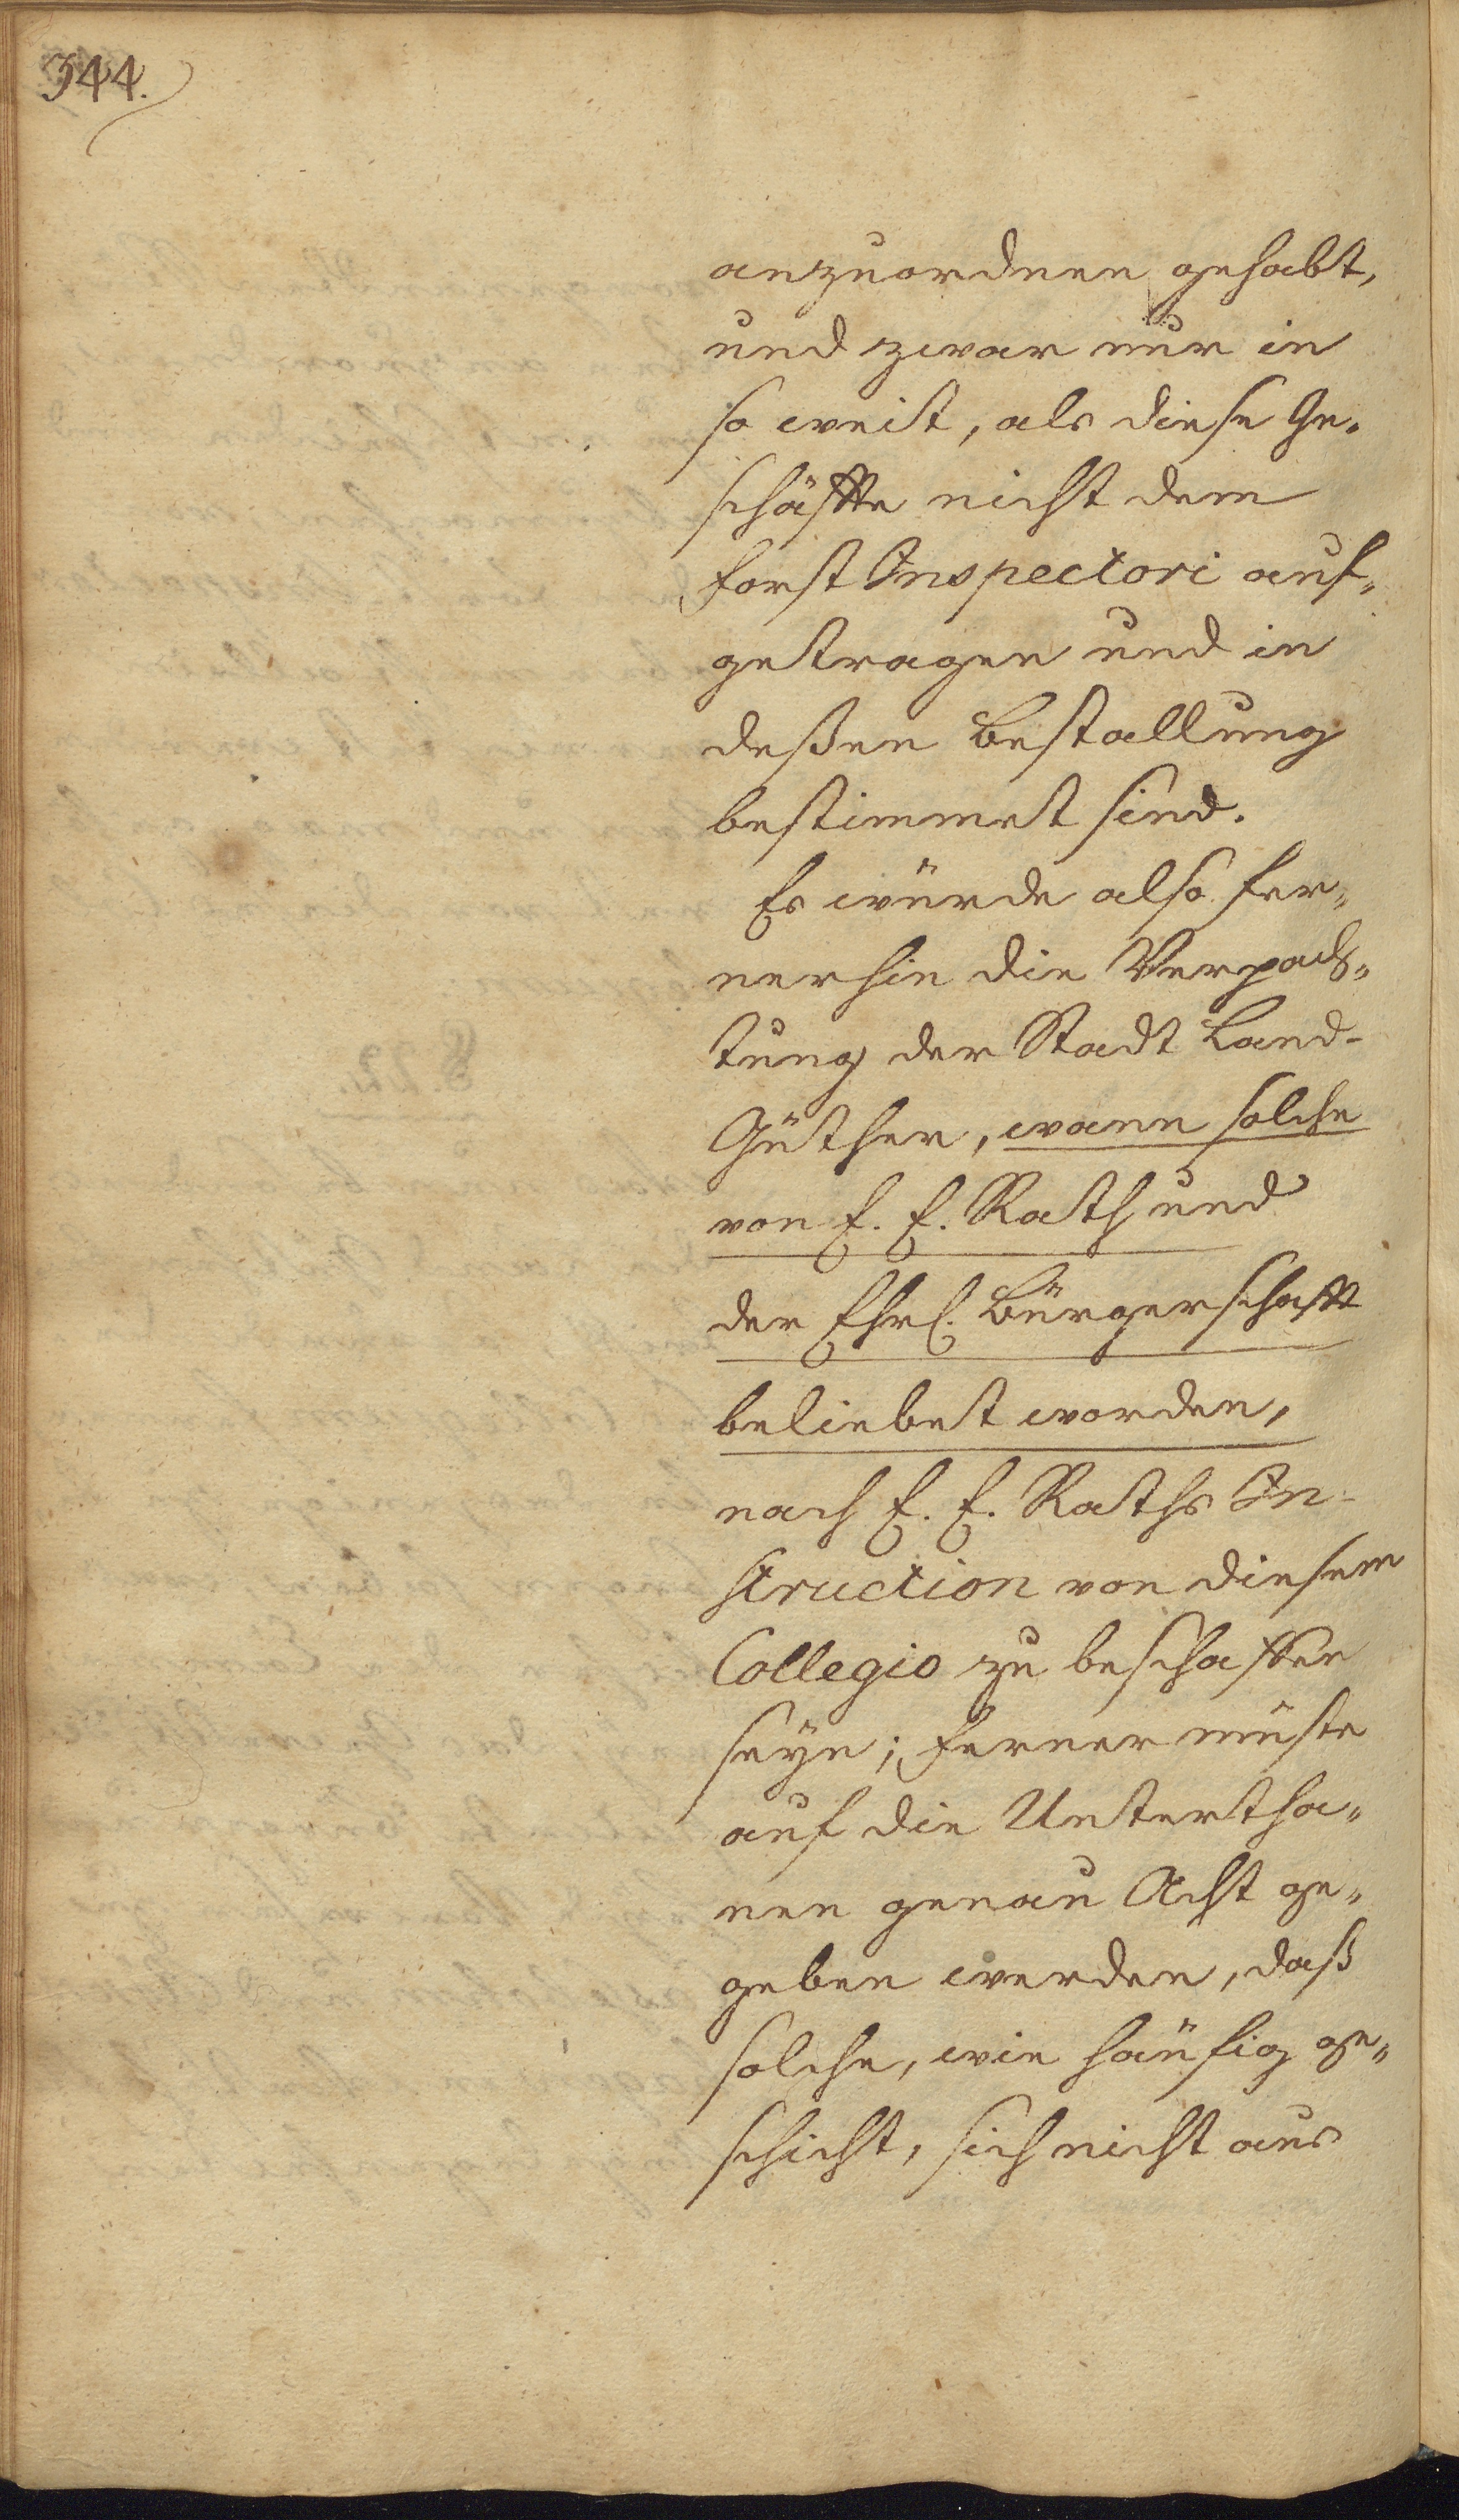 344.
anzuordnen gehabt,
und zwar nur in
so weit, als diese Ge-
schäffte nicht dem
Forst Inspectori auf-
getragen und in
deßen Bestallung
bestimmet sind.
Es würde also fer-
nerhin die Verpach-
tung der Stadt Land-
Güther, wann solche
von E. E. Rath und
der Ehrl. Bürgerschafft
beliebet worden,
nach E. E. Raths In-
struction von diesem
Collegio zu beschaffen
seyn; ferner müste
auf die Untertha-
nen genau Acht ge-
geben werden, daß
solche, wie häufig ge-
schicht, sich nicht aus